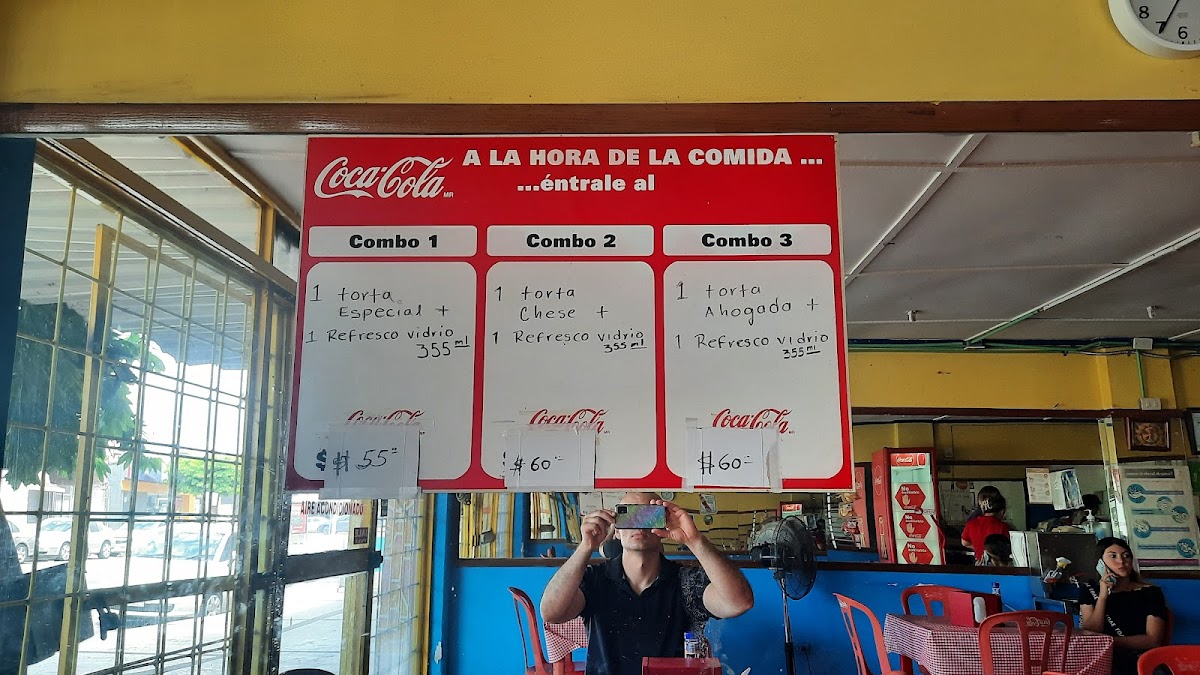 8 7 6
Coca-Cola MR
A LA HORA DE LA COMIDA ...
...éntrale al
Combo 1
1 torta
Especial +
1 Refresco vidrio
355 ml
Coca-Cola
$ # 55=
Combo 2
1 torta
Chese +
1 Refresco vidrio
355 ml
Coca-Cola
$60=
Combo 3
1 torta
Ahogada +
1 Refresco vidrio
355 ml
Coca-Cola
$60=
AIRE ACONDICIONADO
Coca-Cola
No
No
No